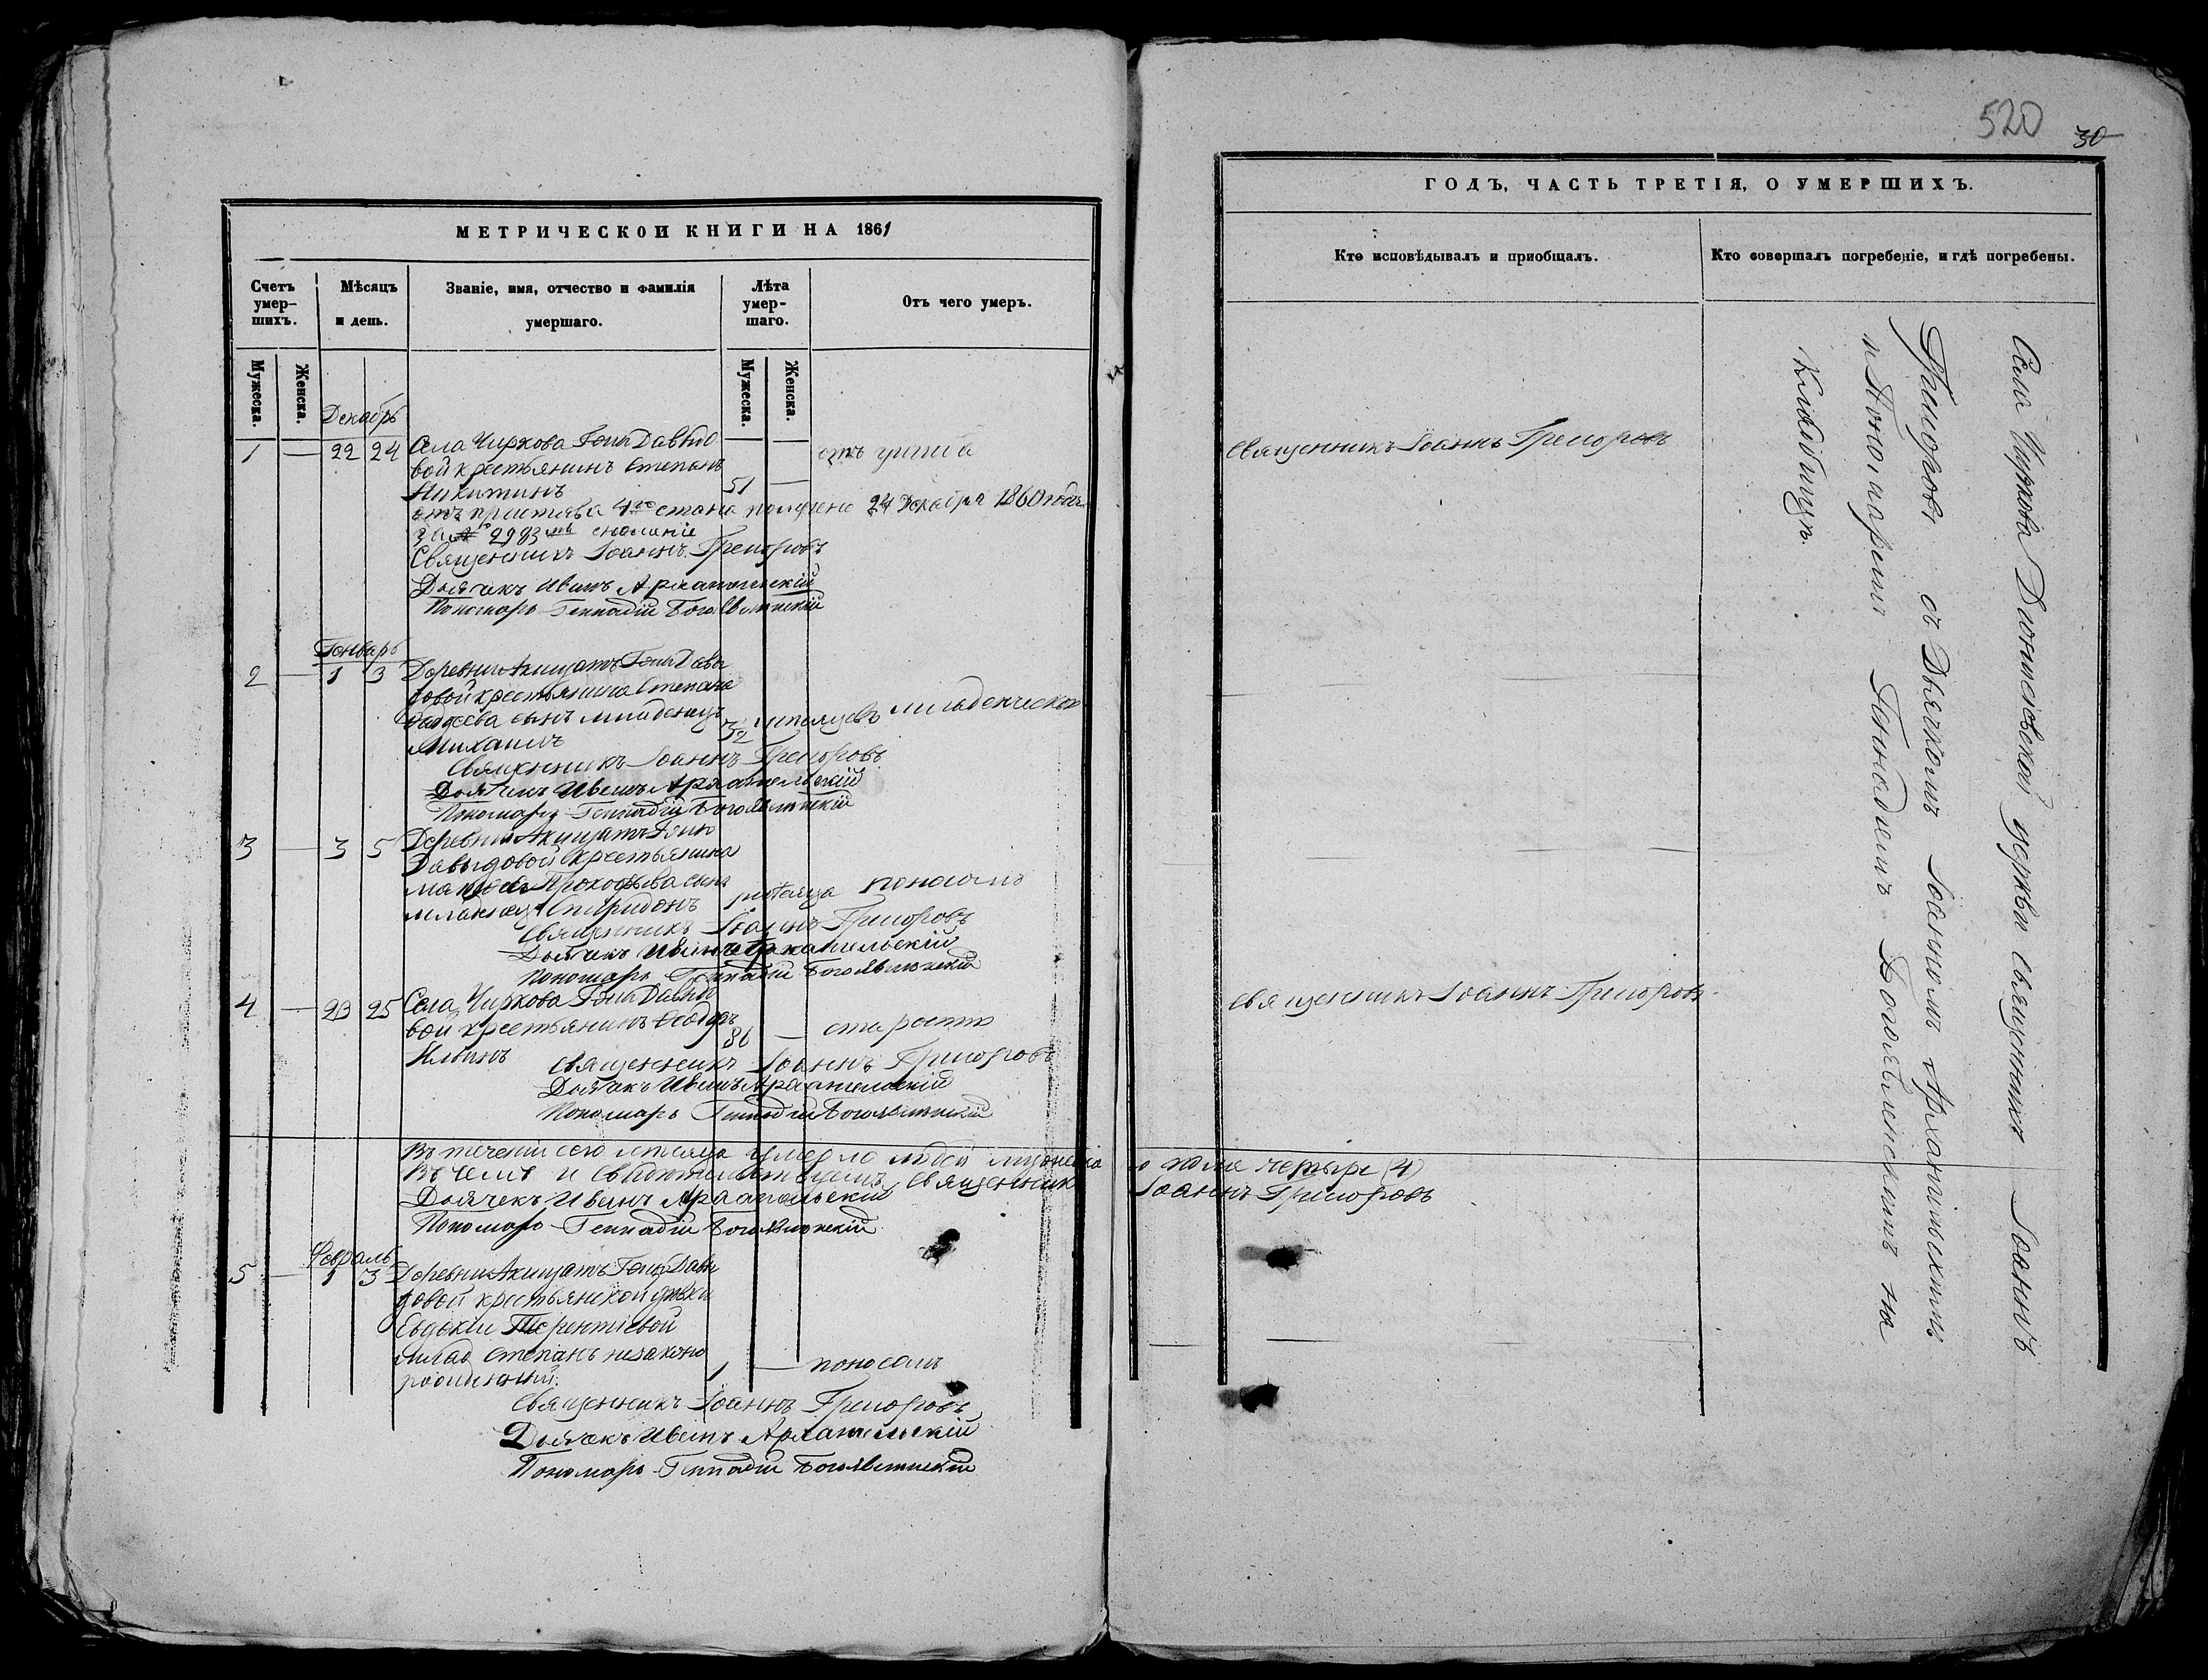 МЕТРИЧЕСКОЙ КНИГИ НА 1861
Счетъ умер-шихъ.
Мѣсяцъ и день.
Званіе, имя, отчество и фамилія умершаго.
Лѣта умер-шаго.
Отъ чего умеръ.
Мужеска.
Женска.
Мужеска.
Женска.
Декабрь
1 — 22 24 Села Чиркова Г-жи Давыдо
вой крестьянинъ Степанъ
Никитинъ 51 —
отъ пристава 4го стана получено 24 Декабря 1860 года
за № 2983мъ
Священникъ Іоаннъ Григоровъ
Дьячекъ Иванъ Архангельскій
Пономарь Геннадій Богоявленскій
Генварь
2 — 1 3 Деревни Г-жи Давы
довой крестьянина Степана
сынъ младенецъ
Михаилъ младенческой
Священникъ Іоаннъ Григоровъ
Дьячекъ Иванъ Архангельскій
Пономарь Геннадій Богоявленскій
3 — 3 5 Деревни Г-жи
Давыдовой крестьянина
Прокофьева сынъ
младенецъ Спиридонъ мѣсяца поносомъ
Священникъ Іоаннъ Григоровъ
Дьячекъ Иванъ Архангельскій
Пономарь Геннадій Богоявленскій
4 — 23 25 Села Чиркова Г-жи Давыдо
вой крестьянинъ Ѳеодоръ
Ильинъ 86 — старости
Священникъ Іоаннъ Григоровъ
Дьячекъ Иванъ Архангельскій
Пономарь Геннадій Богоявленскій
Въ теченіи сего мѣсяца умерло людей мужеска
Въ чемъ и свидѣтельствуемъ священникъ
Дьячекъ Иванъ Архангельскій
Пономарь Геннадій Богоявленскій
Февраль
5 — 1 3 Деревни Г-жи Давы
довой крестьянской дѣвки
Евдокіи Терентіевой
млад Степанъ незаконо
рожденный. 1 — поносомъ
Священникъ Іоаннъ Григоровъ
Дьячекъ Иванъ Архангельскій
Пономарь Геннадій Богоявленскій
520 30
ГОДЪ, ЧАСТЬ ТРЕТІЯ, О УМЕРШИХЪ.
Кто исповѣдывалъ и пріобщалъ.
Кто совершалъ погребеніе, и гдѣ погребены.
Священникъ Іоаннъ Григоровъ
Священникъ Іоаннъ Григоровъ
пола четыре (4)
Іоаннъ Григоровъ
Села Чиркова церкви священникъ Іоаннъ
Григоровъ съ Дьячкомъ Іоанномъ Архангельскимъ
и Пономаремъ Геннадіемъ Богоявленскимъ на
Кладбищѣ.